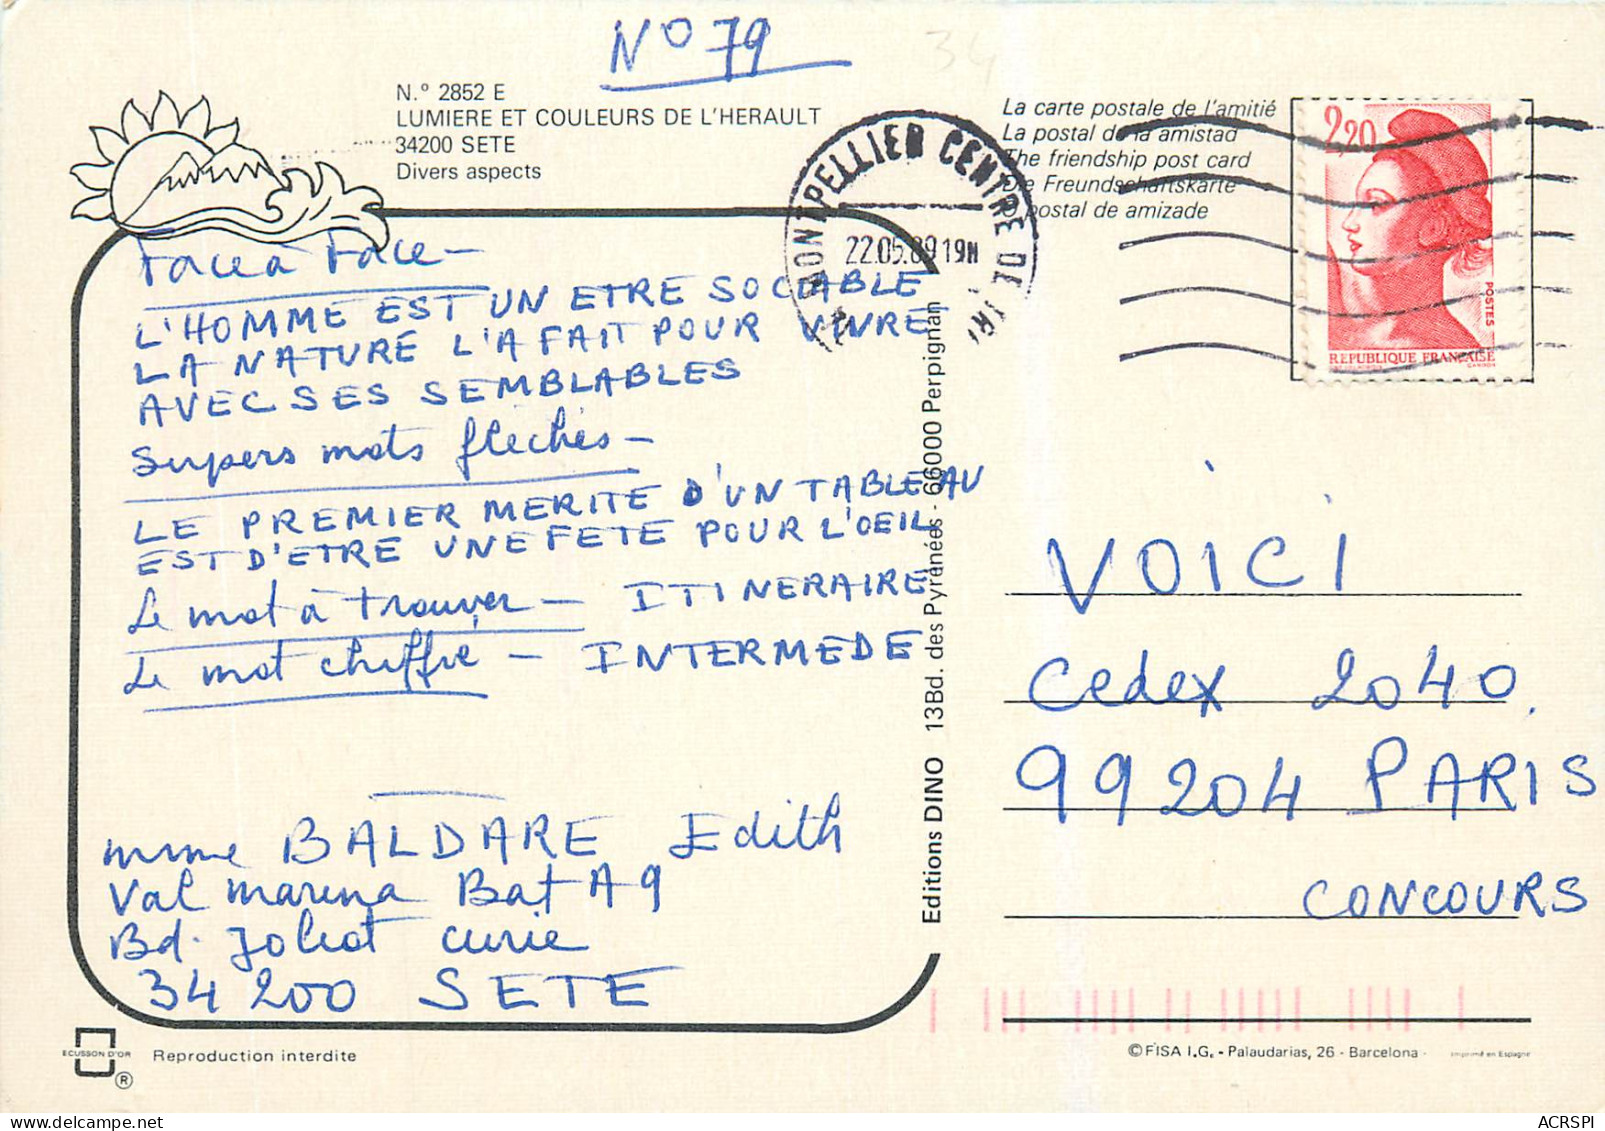 N° 79
34
N.° 2852 E
LUMIERE ET COULEURS DE L'HERAULT
34200 SETE
Divers aspects
La carte postale de l'amitié
La postal de la amistad
The friendship post card
Die Freundschaftskarte
O postal de amizade
MONTPELLIER CENTRE DE TRI
22.05.89 19H
2,20
POSTES
REPUBLIQUE FRANÇAISE
Face à Face -
L'HOMME EST UN ETRE SOCIABLE
LA NATURE L'A FAIT POUR VIVRE
AVEC SES SEMBLABLES
Supers mots fléchés -
LE PREMIER MERITE D'UN TABLEAU
EST D'ETRE UNE FETE POUR L'OEIL
Le mot à trouver - ITINERAIRE
Le mot chiffré - INTERMEDE
mme BALDARE Edith
Val marina Bat A9
Bd. Joliot curie
34200 SETE
Editions DINO 13Bd. des Pyrénées - 66000 Perpignan
VOICI
Cedex 2040
99204 PARIS
CONCOURS
ECUSSON D'OR
®
Reproduction interdite
© FISA I.G. - Palaudarias, 26 - Barcelona - Imprimé en Espagne
ACRSPI